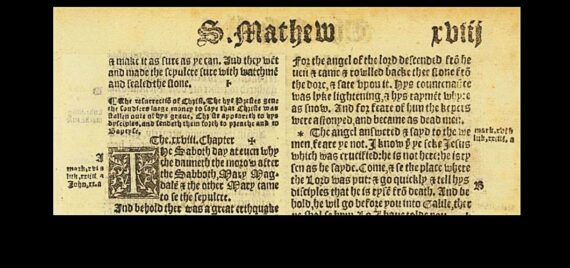 S. Mathew
xviij
& make it as sure as ye can. And they wēt
and made the sepulcre sure with watchmē
and sealed the stone.
¶ The resurrectiō of Christ. The hye Prestes geue
the soudiers large money to saye that Christ was
stollen out of hys graue. Chr
apeareth to hys
dysciples, and sendeth them forth to preache and to
Baptyse.
The .xxviii. Chapter
The Saboth day at euen whych
the dauneth the morow after
the Sabboth, Mary Mag-
dalē & the other Mary came
to se the sepulcre.
And behold ther was a great erthquake
For the angel of the lord descended frō he
uen & came & rowlled backe ther stone frō
the dore, & sate vpon it. Hys countenaūce
was lyke lightening, & hys raymēt whyte
as snow. And for feare of him the kepers
were astonyed, and became as dead men.
* The angel answered & sayd to the wo
men, feare ye not. I know yͭ ye seke Jesus
which was crucified: he is not here: he is ry
sen as he sayde. Come, & se the place where
the Lord was put: & go quickly & tell hys
disciples that he is rysē frō death. And be
hold, he wil go before you into Galile, ther
ye shal se hym. Lo I haue tolde you
A
John, xx. a
B